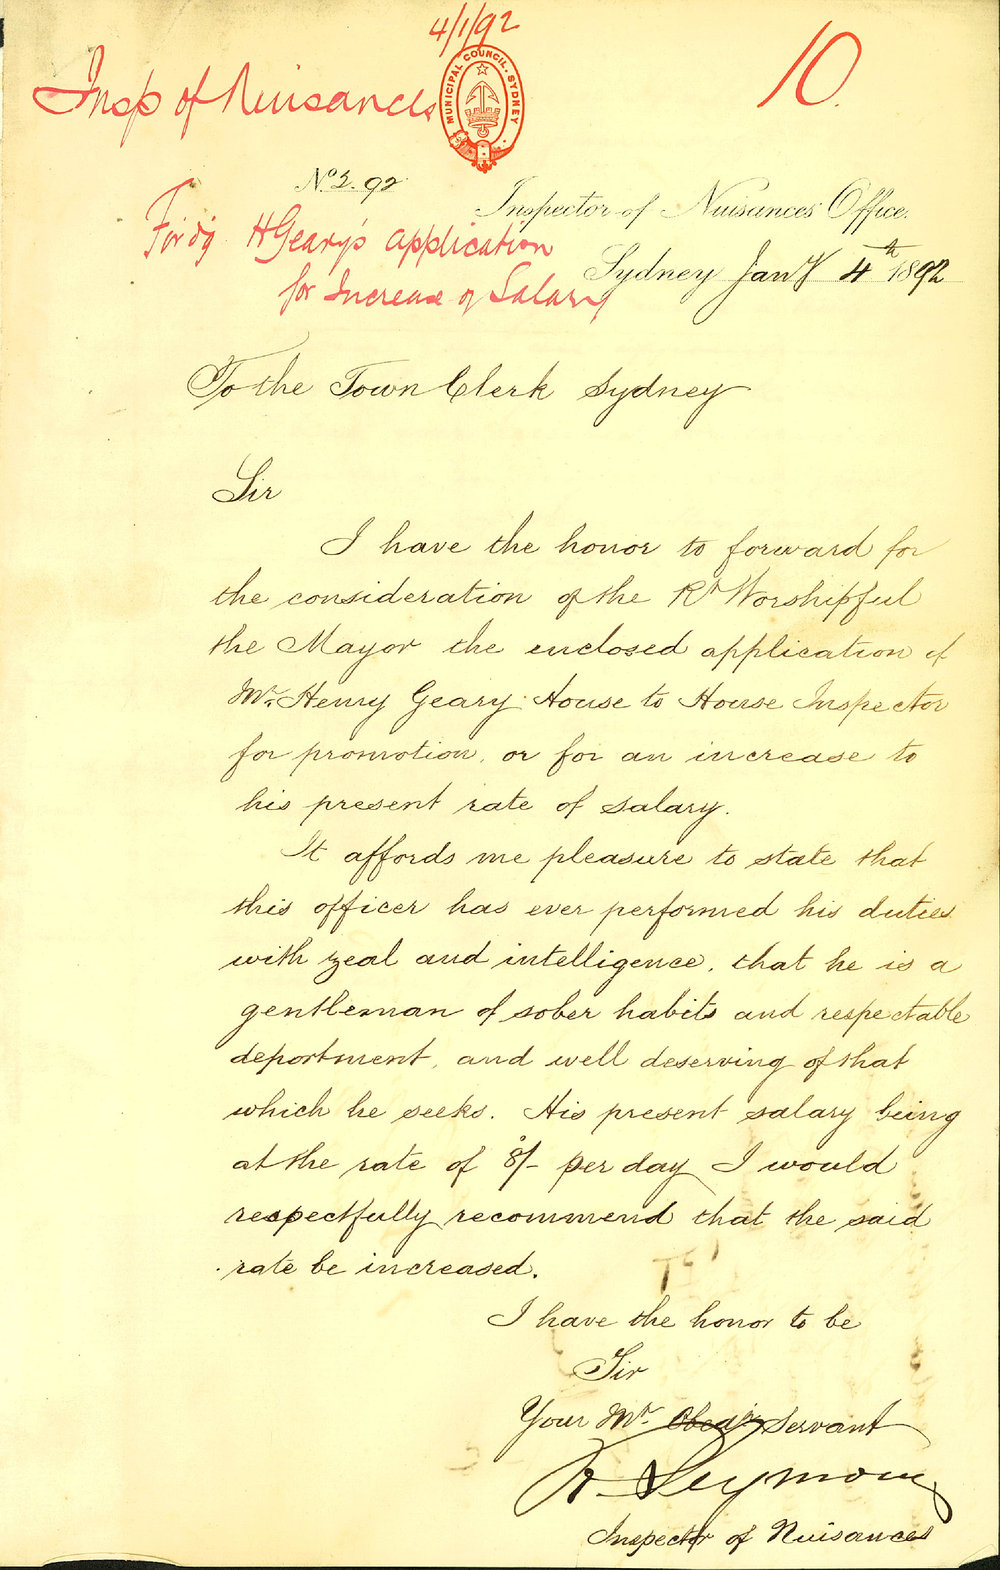 4/1/92
10.
Insp of Nuisances
MUNICIPAL COUNCIL. SYDNEY
No 2. 92
Inspector of Nuisances Office.
Fordg H Geary's application
for Increase of Salary
Sydney Jany 4th 1892
To the Town Clerk Sydney
Sir
I have the honor to forward for
the consideration of the Rt Worshipful
the Mayor the enclosed application of
Mr. Henry Geary House to House Inspector
for promotion, or for an increase to
his present rate of salary.
It affords me pleasure to state that
this officer has ever performed his duties
with zeal and intelligence, that he is a
gentleman of sober habits and respectable
deportment, and well deserving of that
which he seeks. His present salary being
at the rate of 8/- per day I would
respectfully recommend that the said
rate be increased.
I have the honor to be
Sir
Your Mt. Obedt Servant
R Seymour
Inspector of Nuisances